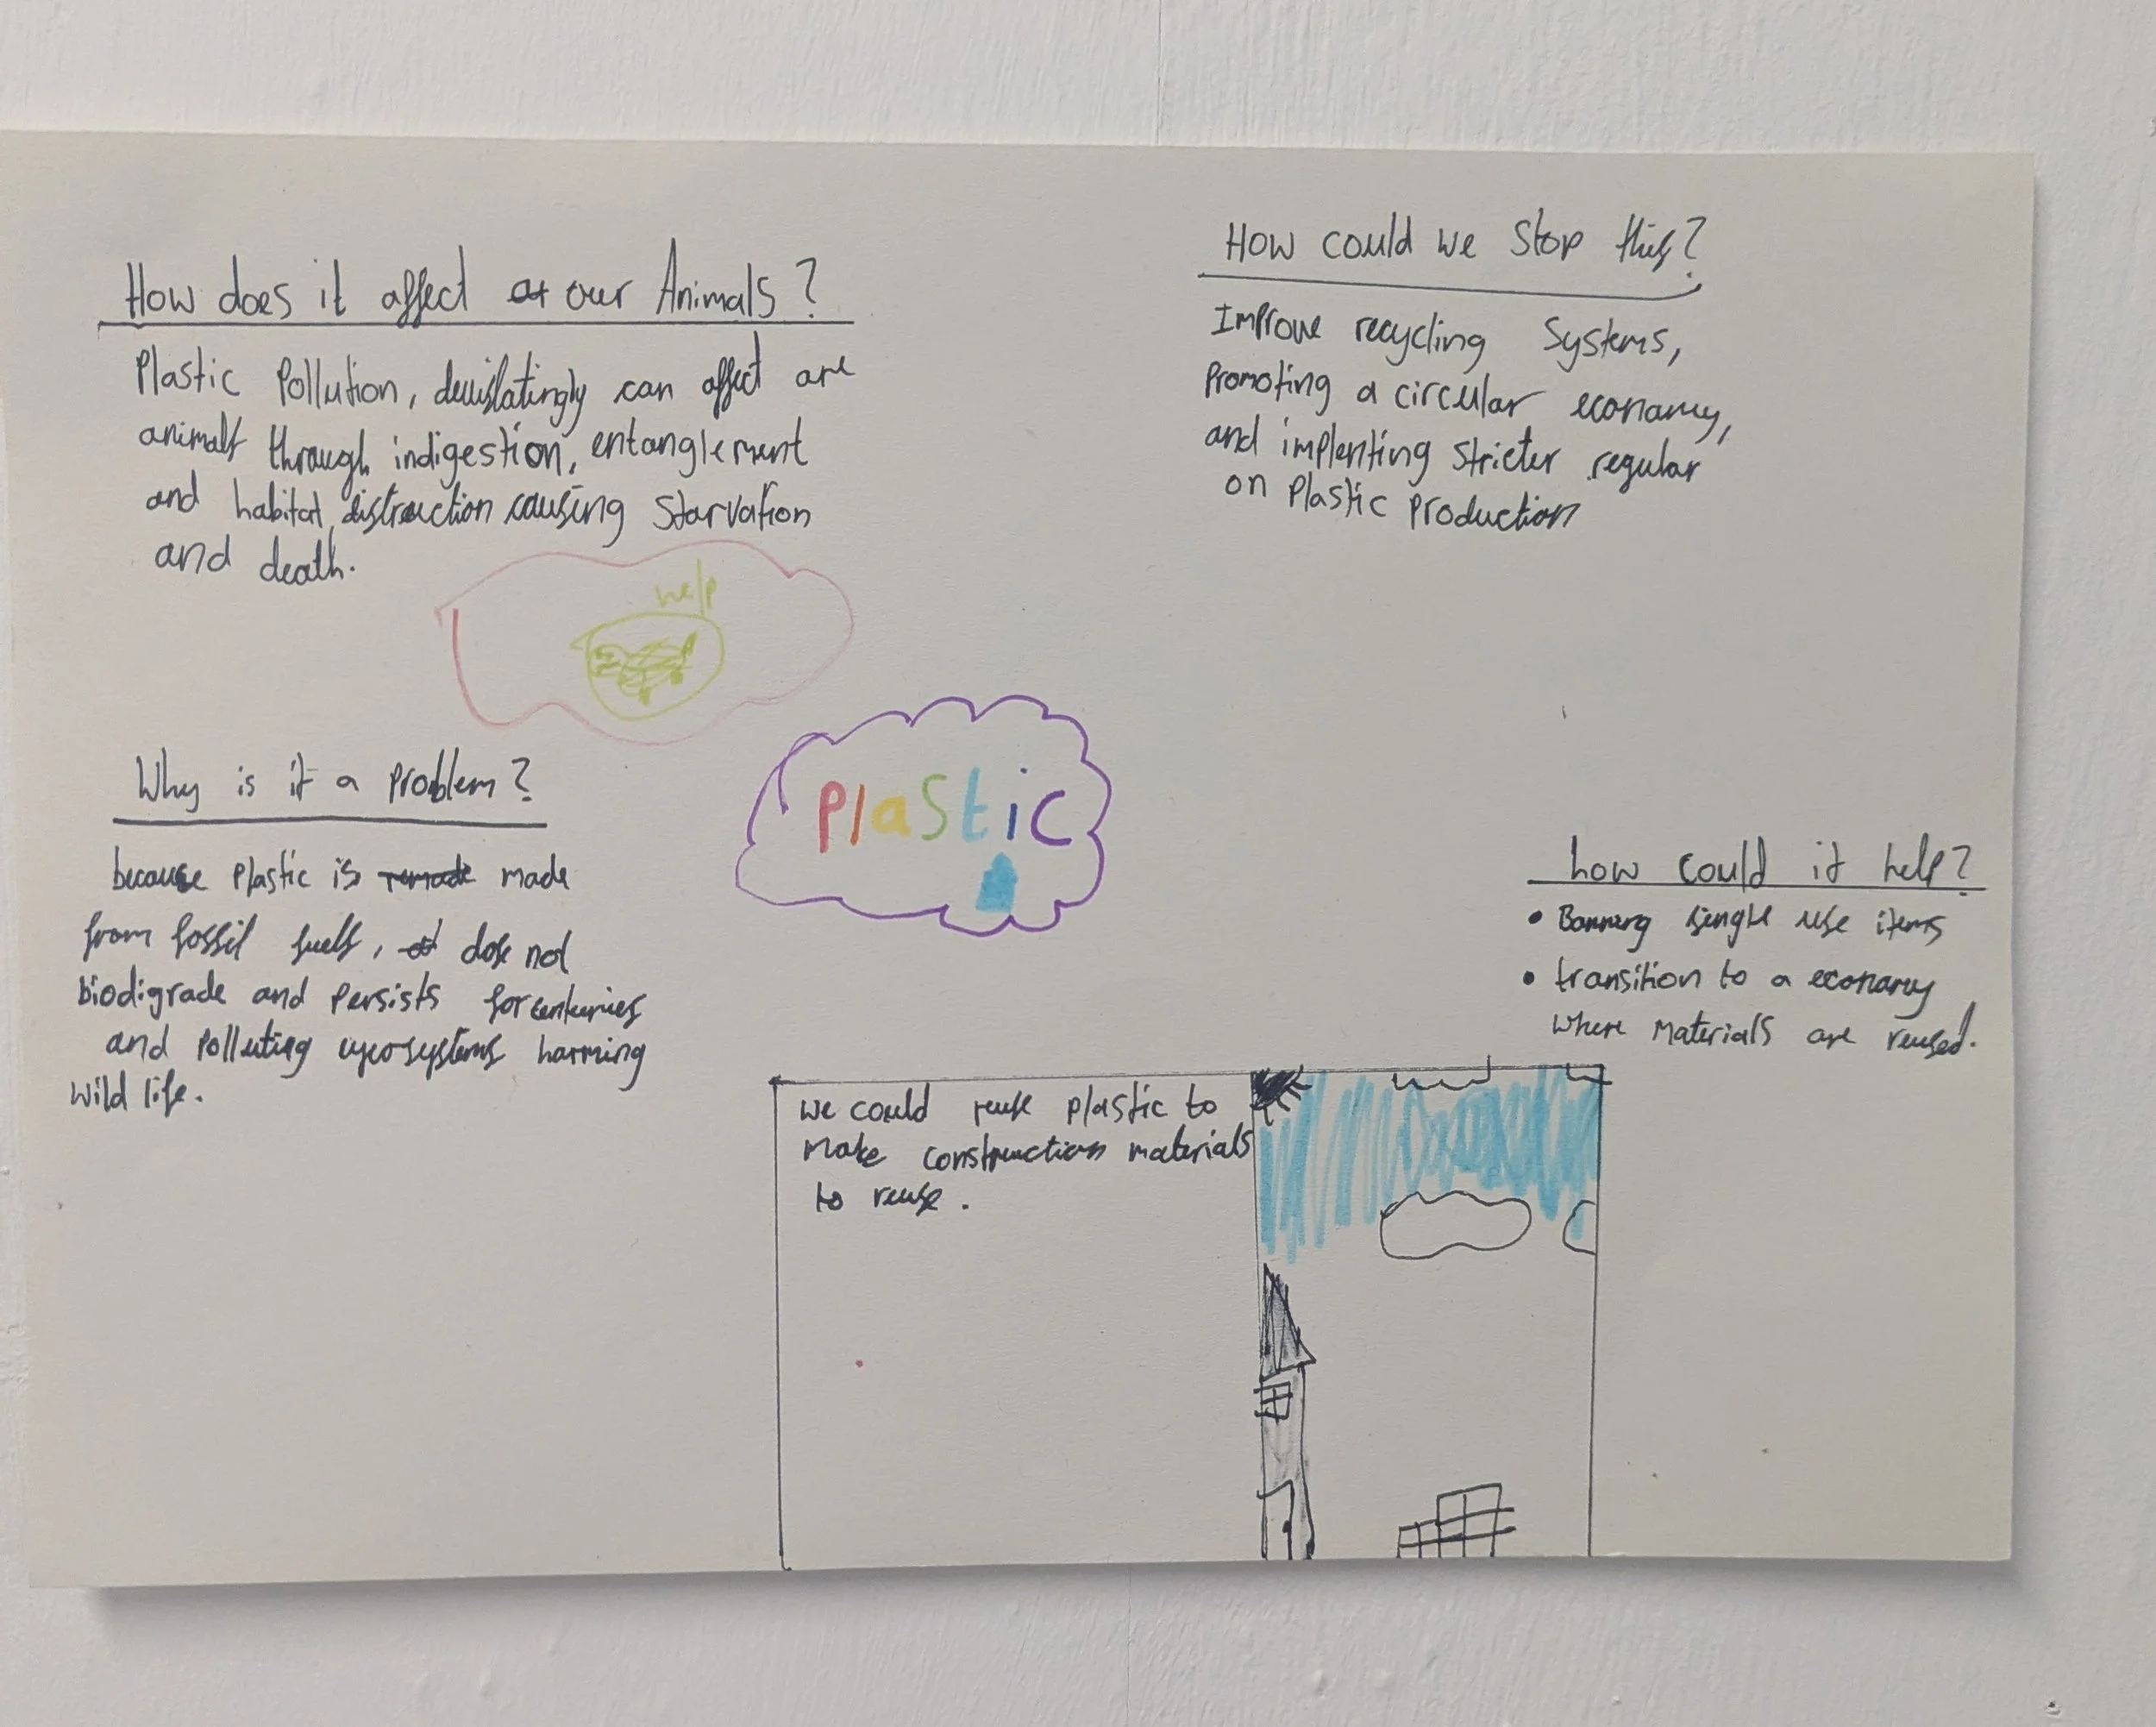 How does it affect our Animals?
Plastic Pollution, devistatingly can affect are
animals through indigestion, entanglement
and habitat distruction causing starvation
and death.
help
How could we stop this?
Improve recycling systems,
Promoting a circular economy,
and implenting stricter regular
on plastic production
Plastic
Why is it a problem?
because plastic is made
from fossil fuels, dose not
biodigrade and persists for centuries
and polluting eycosystems harming
wild life.
how could it help?
• Banning single use items
• transition to a economy
where materials are reused.
we could reuse plastic to
make construction materials
to reuse.